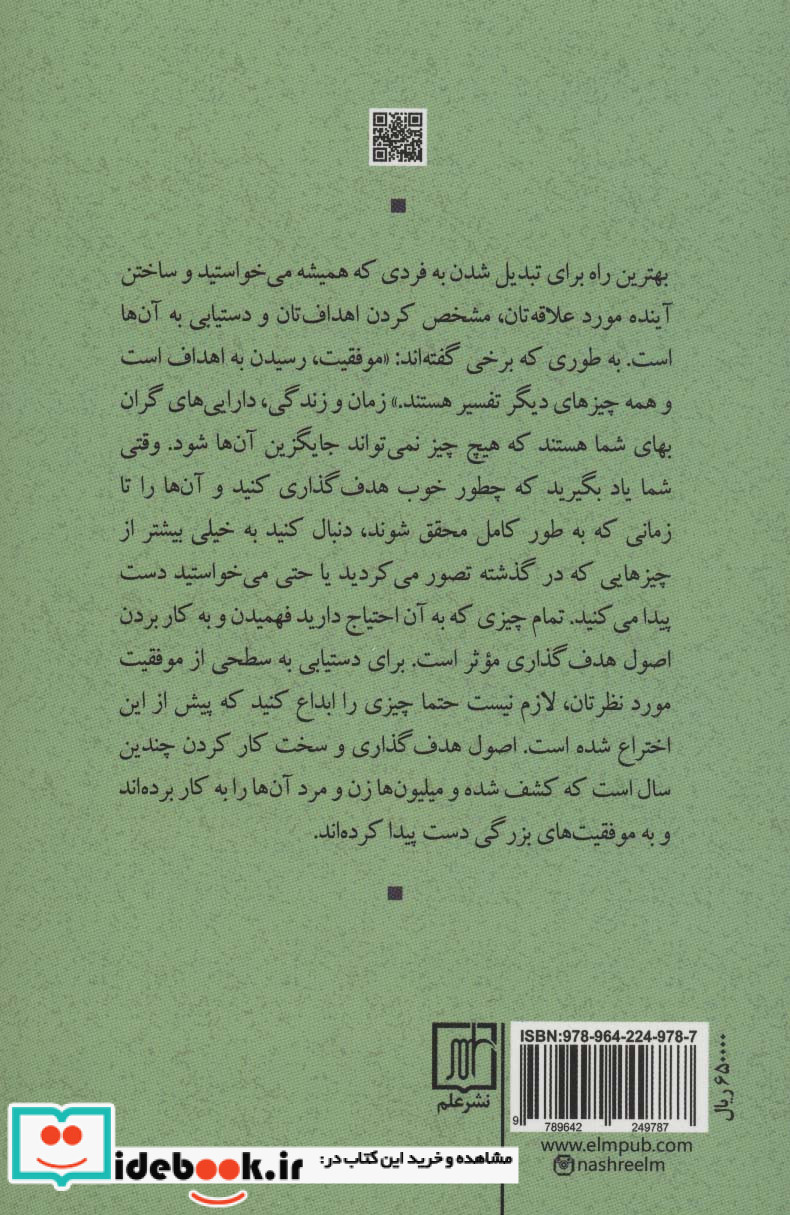 بهترین راه برای تبدیل شدن به فردی که همیشه می‌خواستید و ساختن
آینده مورد علاقه‌تان، مشخص کردن اهداف‌تان و دستیابی به آن‌ها
است. به طوری که برخی گفته‌اند: «موفقیت، رسیدن به اهداف است
و همه چیزهای دیگر تفسیر هستند.» زمان و زندگی، دارایی‌های گران
بهای شما هستند که هیچ چیز نمی‌تواند جایگزین آن‌ها شود. وقتی
شما یاد بگیرید که چطور خوب هدف‌گذاری کنید و آن‌ها را تا
زمانی که به طور کامل محقق شوند، دنبال کنید به خیلی بیشتر از
چیزهایی که در گذشته تصور می‌کردید یا حتی می‌خواستید دست
پیدا می‌کنید. تمام چیزی که به آن احتیاج دارید فهمیدن و به کار بردن
اصول هدف‌گذاری مؤثر است. برای دستیابی به سطحی از موفقیت
مورد نظرتان، لازم نیست حتما چیزی را ابداع کنید که پیش از این
اختراع شده است. اصول هدف‌گذاری و سخت کار کردن چندین
سال است که کشف شده و میلیون‌ها زن و مرد آن‌ها را به کار برده‌اند
و به موفقیت‌های بزرگی دست پیدا کرده‌اند.
ISBN:978-964-224-978-7
9 789642 249787
۶۵۰۰۰۰ ریال
نشر علم
www.elmpub.com
nashreelm
مشاهده و خرید این کتاب در:
idebook.ir